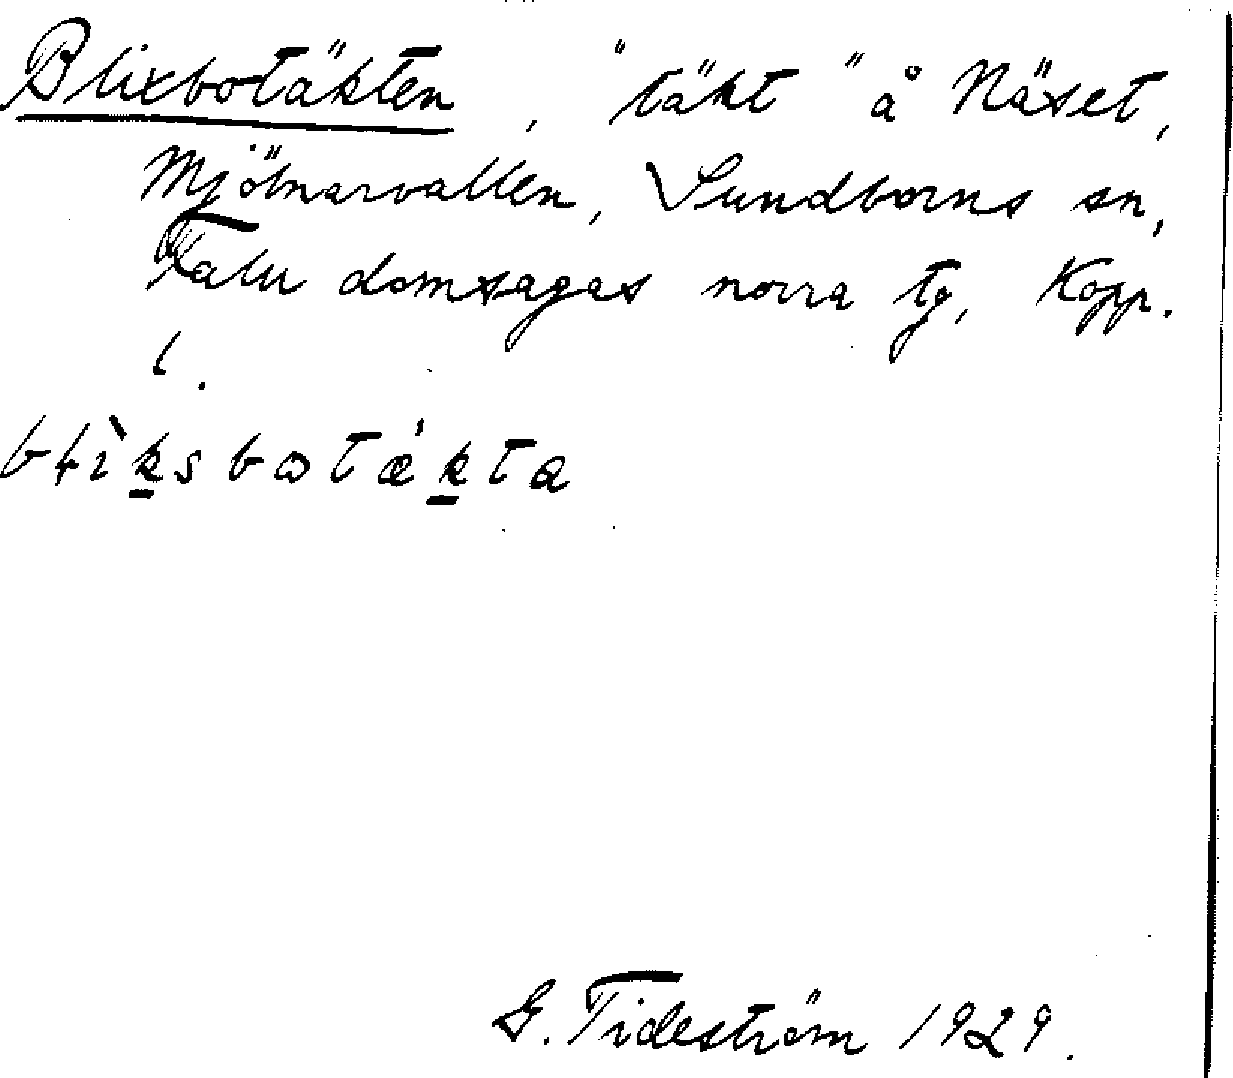 Blixbotäkten, "täkt" å Näset,
Mjölnarvallen, Sundborns sn,
Falu domsagas norra tg, Kopp.
l.
błìksbotǽkta
G. Tideström 1929.